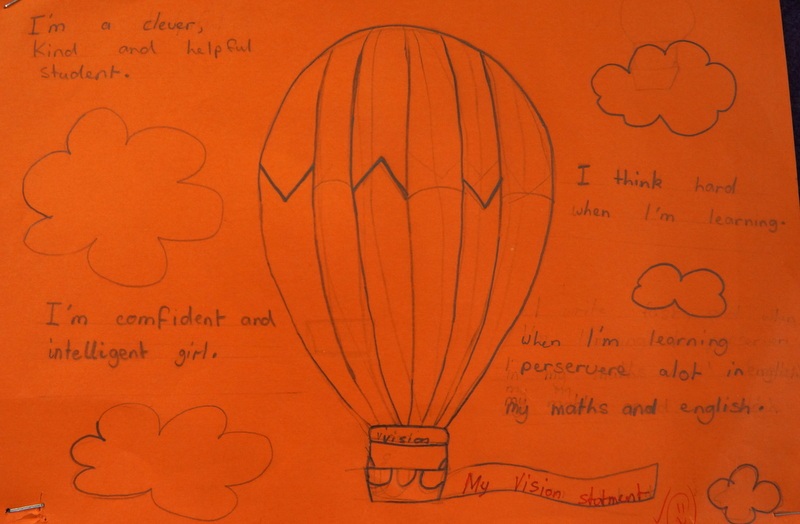 I'm a clever,
Kind and helpful
student.
I think hard
when I'm learning.
I'm comfident and
intelligent girl.
when I'm learning
I perservere alot in
my maths and english.
vision
My Vision statment